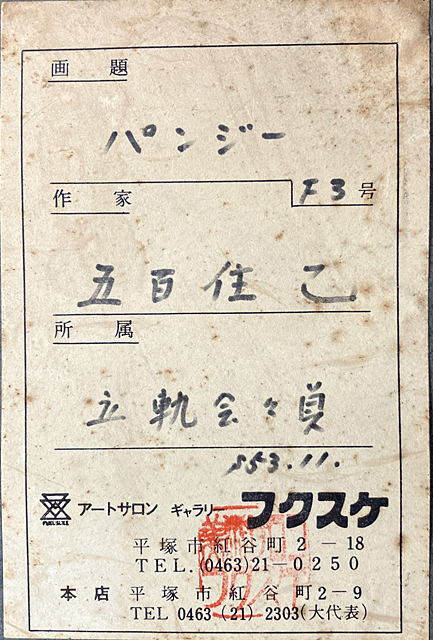 画題
パンジー
作家
F3号
五百住乙
所属
立軌会々員
S53.11.
アートサロン ギャラリー フクスケ
平塚市紅谷町2-18
TEL.(0463)21-0250
本店 平塚市紅谷町2-9
TEL 0463(21)2303(大代表)